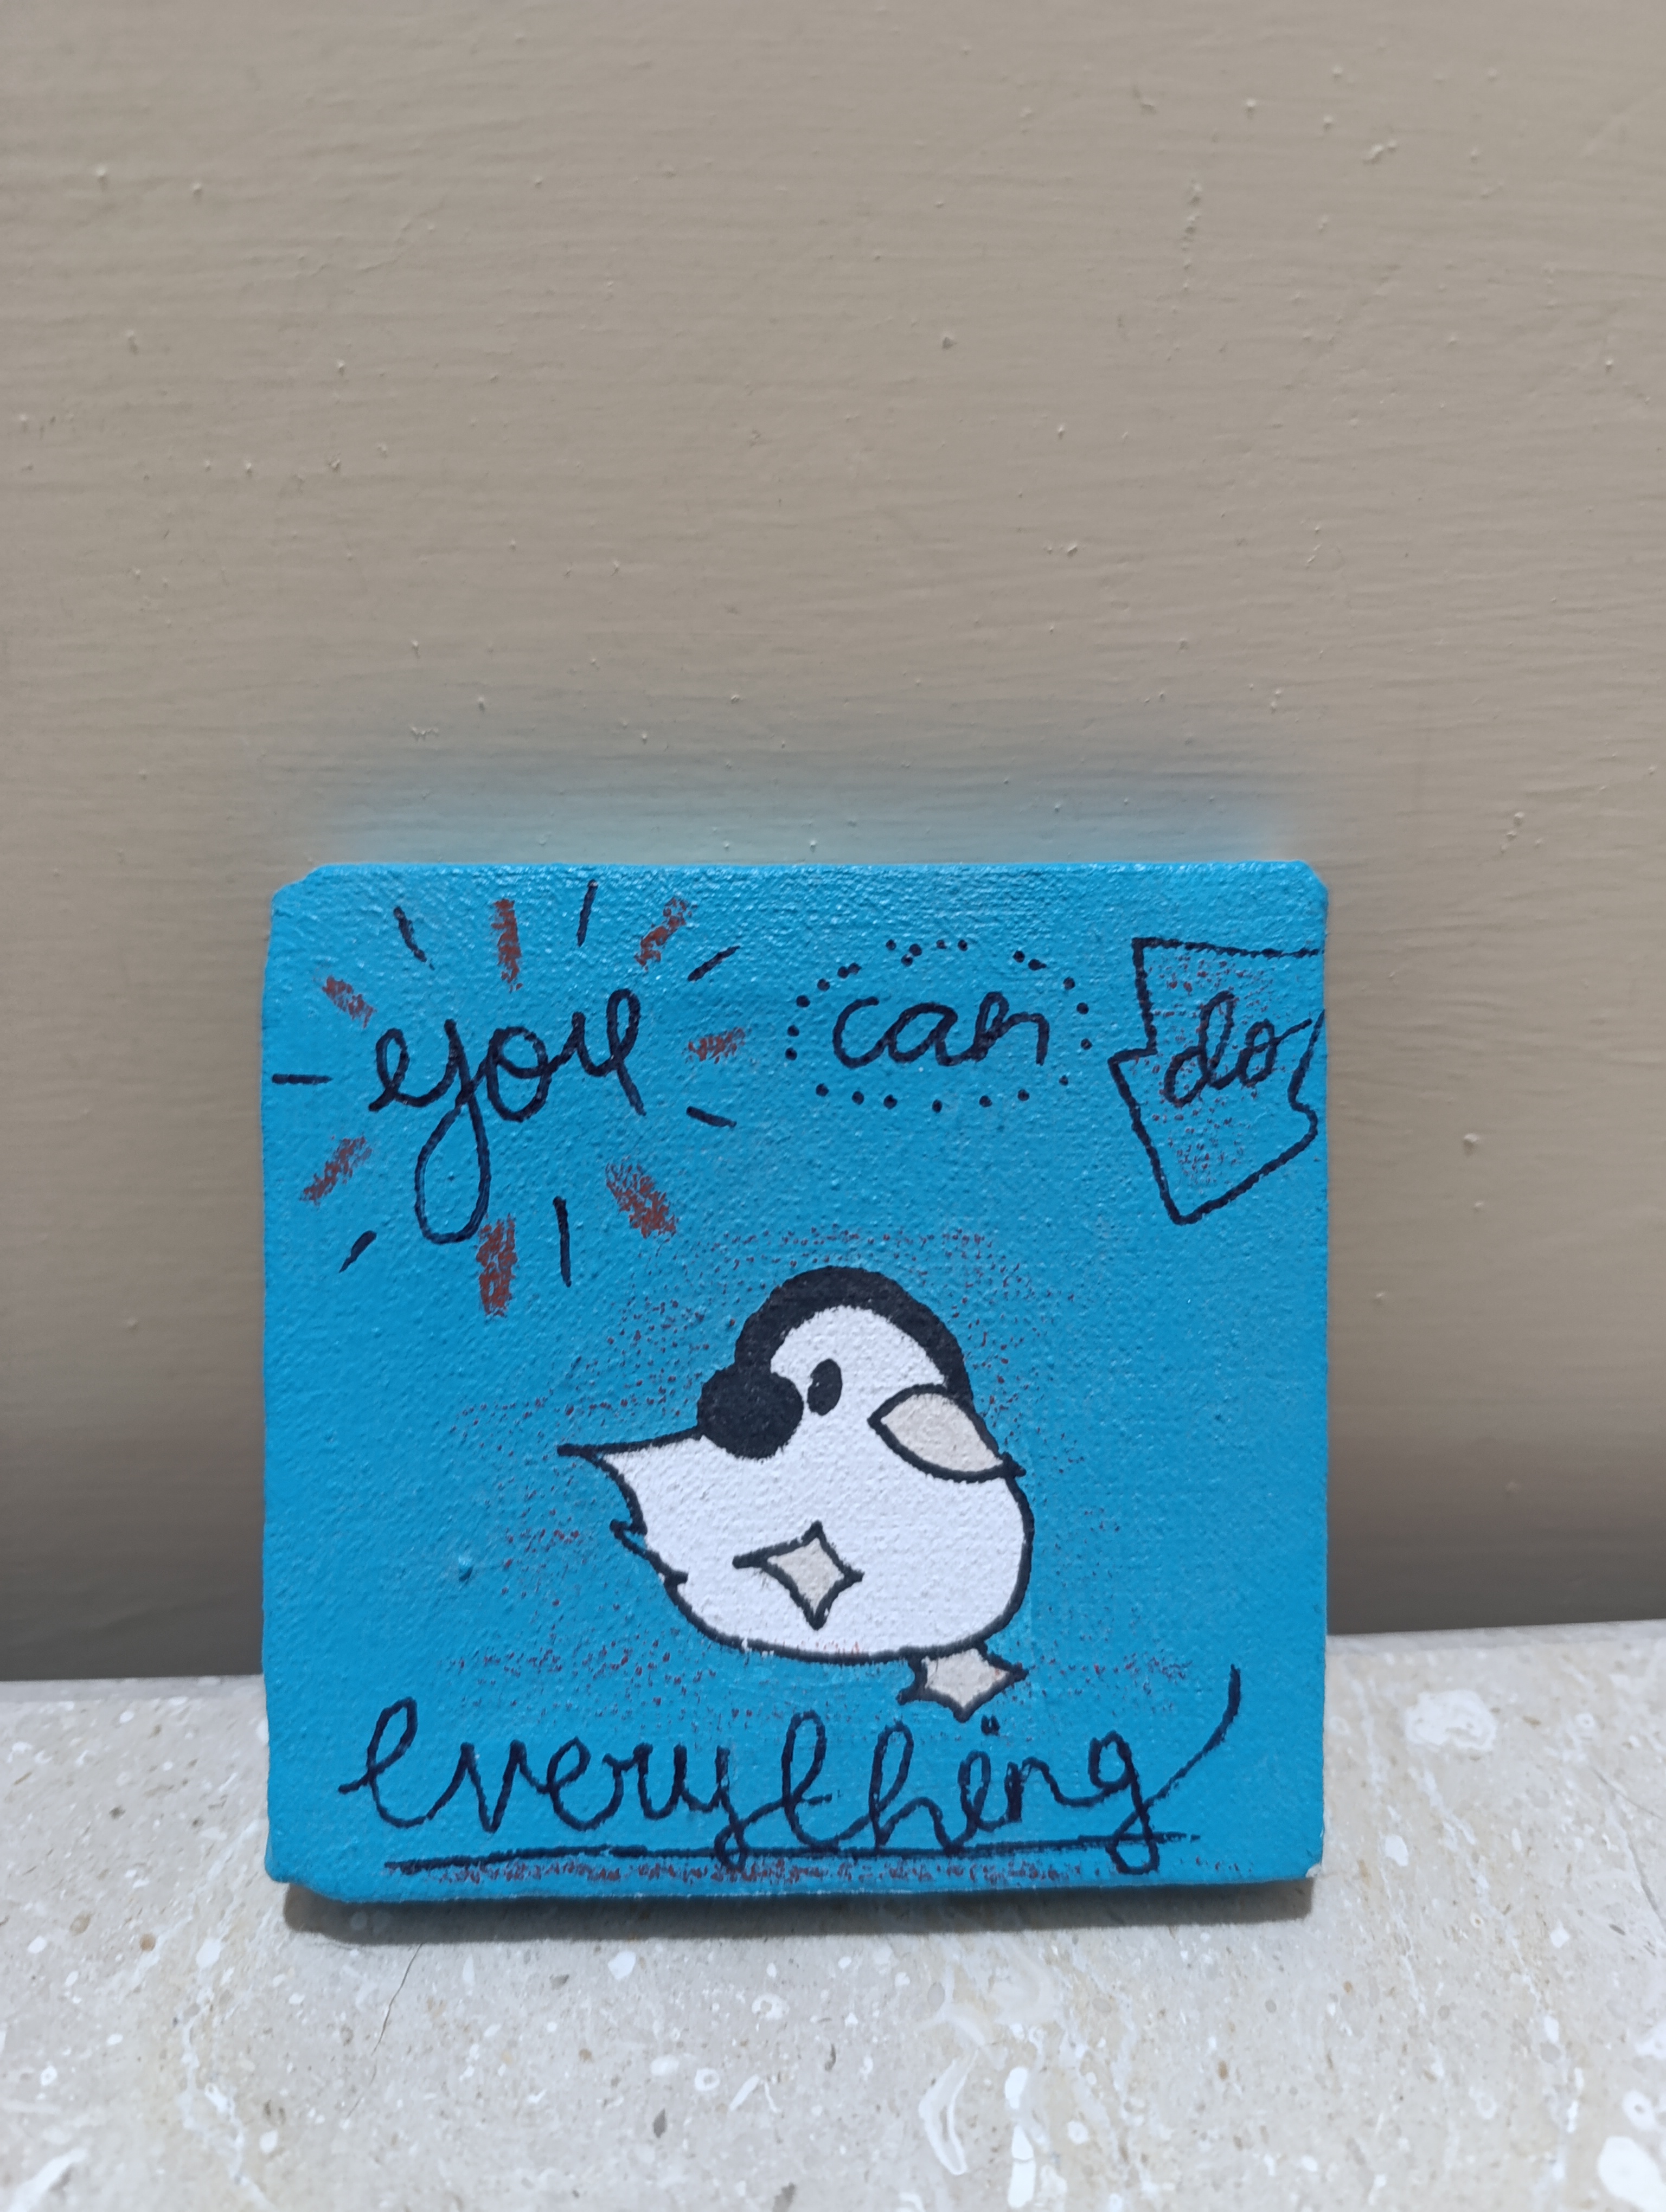 you can do
everything